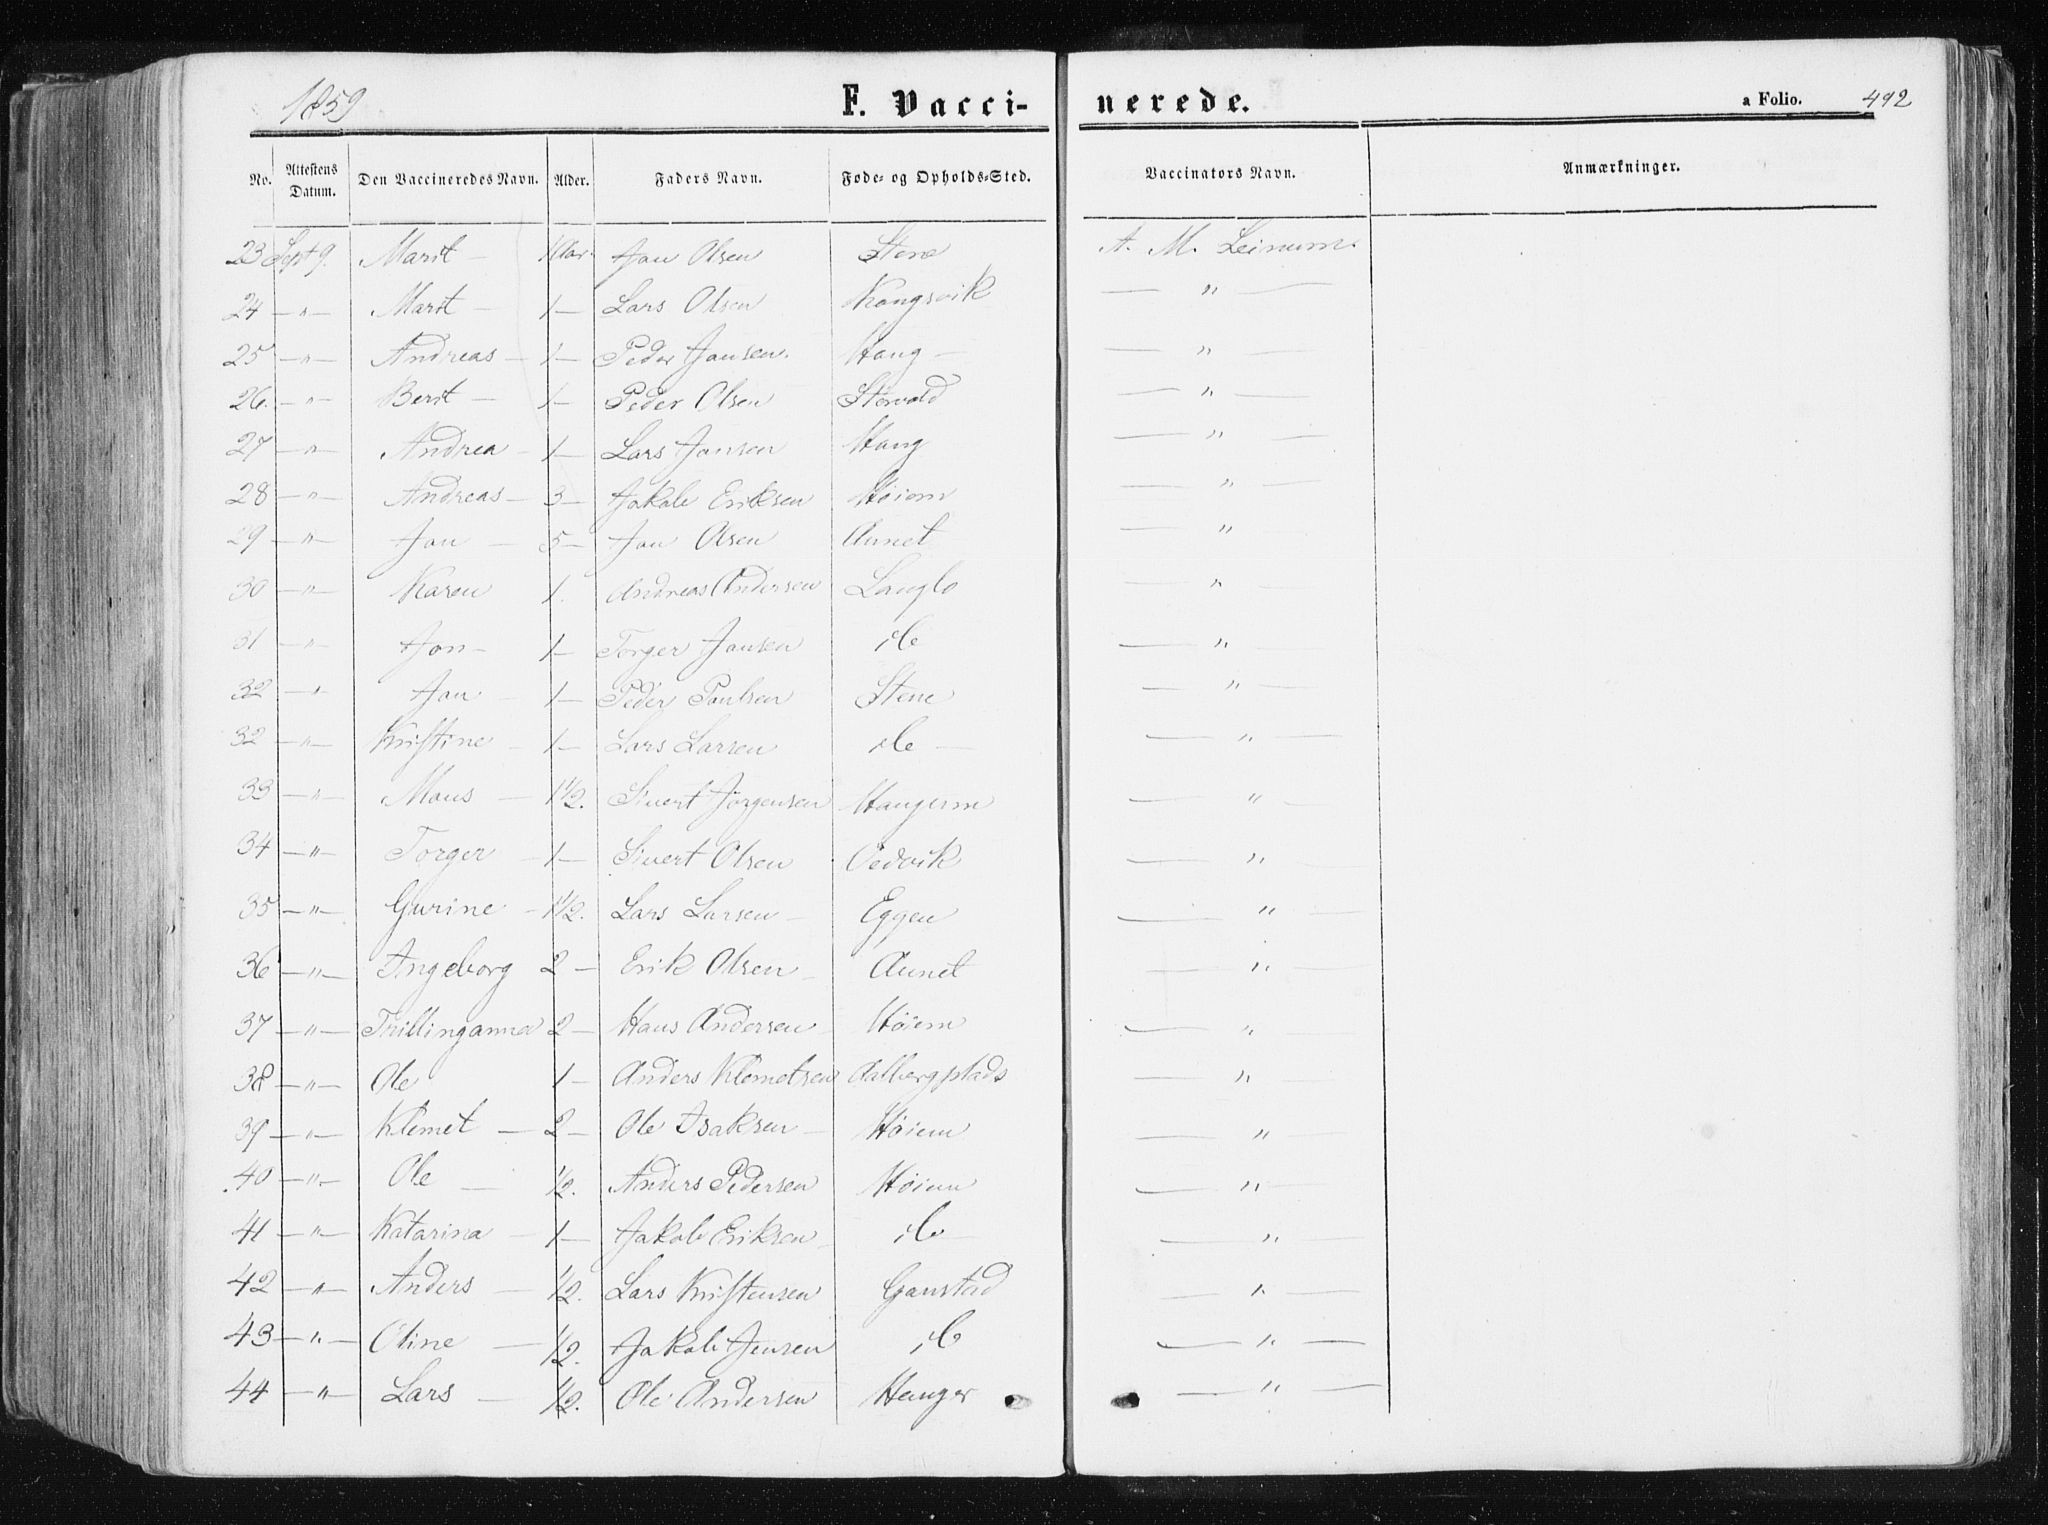 1859 F. Vacci- nerede. a Folio. 492
No. Attestens Datum. Den Vaccineredes Navn. Alder. Faders Navn. Føde- og Opholds-Sted. Vaccinators Navn. Anmærkninger.
23 Sept 9. Marit — 1 Aar. Jon Olsen Stene A. M. Leinum.
24 — " — Marit — 1 — Lars Olsen Kongsvik — " —
25 — " — Andreas — 1 — Peder Jonsen. Haug — — " —
26. — " Berit — 1 — Peder Olsen Størvold — " —
27 — " — Andrea — 1 — Lars Jonsen Haug — " —
28 — " — Andreas — 3 — Jakob Eriksen Høiem — " —
29 — " — Jon — 5 — Jon Olsen Aunet — " —
30 — " — Karen 1. Andreas Andersen Langlo — " —
31 — " — Jon — 1 — Torger Jonsen ib — " —
32 — " Jon — 1 — Peder Paulsen Stene — " —
32 — " — Kristine — 1 — Lars Larsen ib — — " —
33 — " — Mons — 1½. Sivert Jørgensen — " —
34 — " — Torger — 1 — Sivert Olsen Oedvik — " —
35 — " — Gurine — 1½. Lars Larsen — Eggen — " —
36 — " — Ingeborg 2 — Erik Olsen — Aunet — " —
37 — " — Trillinganna 2 — Hans Andersen Høiem — " —
38 — " — Ole 1 — Anders Klemetsen Aalbergplads — " —
39 — " — Klemet — 2 — Ole Isaksen — Høiem — " —
40 — " — Ole — ½. Anders Pedersen Høiem — " —
41 — " — Katarina — 1 — Jakob Eriksen — ib — — " —
42 — " — Anders — ½. Lars Kristensen Ganstad — " —
43 — " — Oline — ½. Jakob Jensen ib — " —
44 — " — Lars — ½. Ole Andersen Hauger — " —